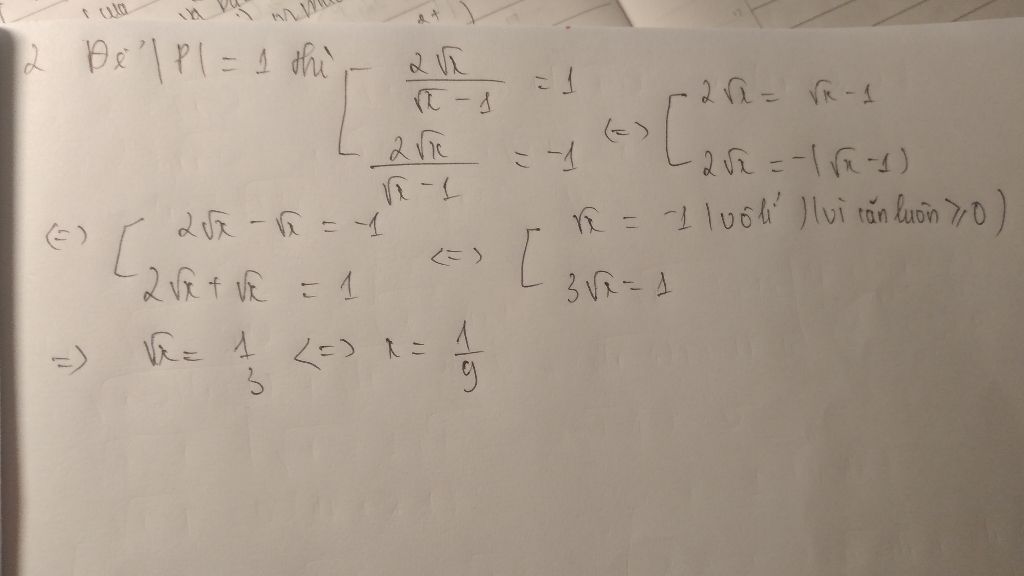 2 Để |P| = 1 thì [ 2√x / (√x - 1) = 1 ; 2√x / (√x - 1) = -1 (=) [ 2√x = √x - 1 ; 2√x = -(√x - 1)
(=) [ 2√x - √x = -1 ; 2√x + √x = 1 <=> [ √x = -1 (vô lí) (vì căn luôn ≥ 0) ; 3√x = 1
=> √x = 1/3 <=> x = 1/9